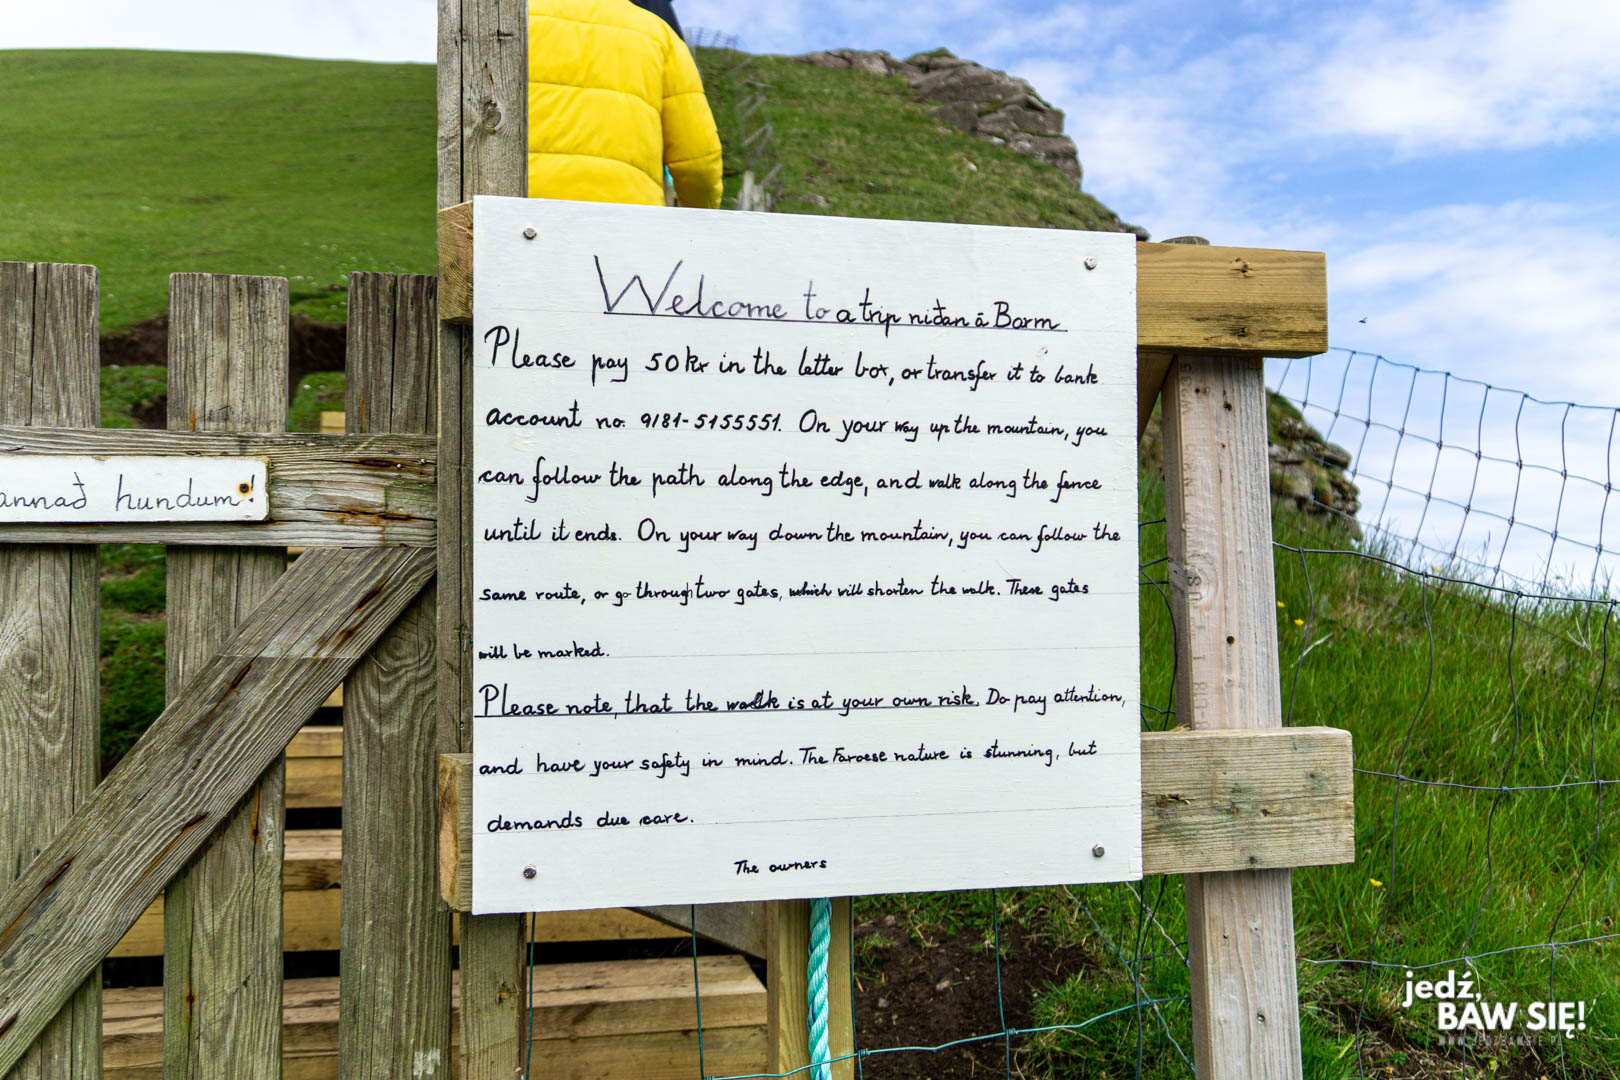 Welcome to a trip niðan á Barm
Please pay 50 kr in the letter box, or transfer it to bank
account no. 9181-5155551. On your way up the mountain, you
can follow the path along the edge, and walk along the fence
until it ends. On your way down the mountain, you can follow the
same route, or go through two gates, which will shorten the walk. These gates
will be marked.
Please note, that the walk is at your own risk. Do pay attention,
and have your safety in mind. The Faroese nature is stunning, but
demands due care.
The owners
annað hundum!
jedź,
BAW SIĘ!
WWW.JEDZBAWSIE.PL